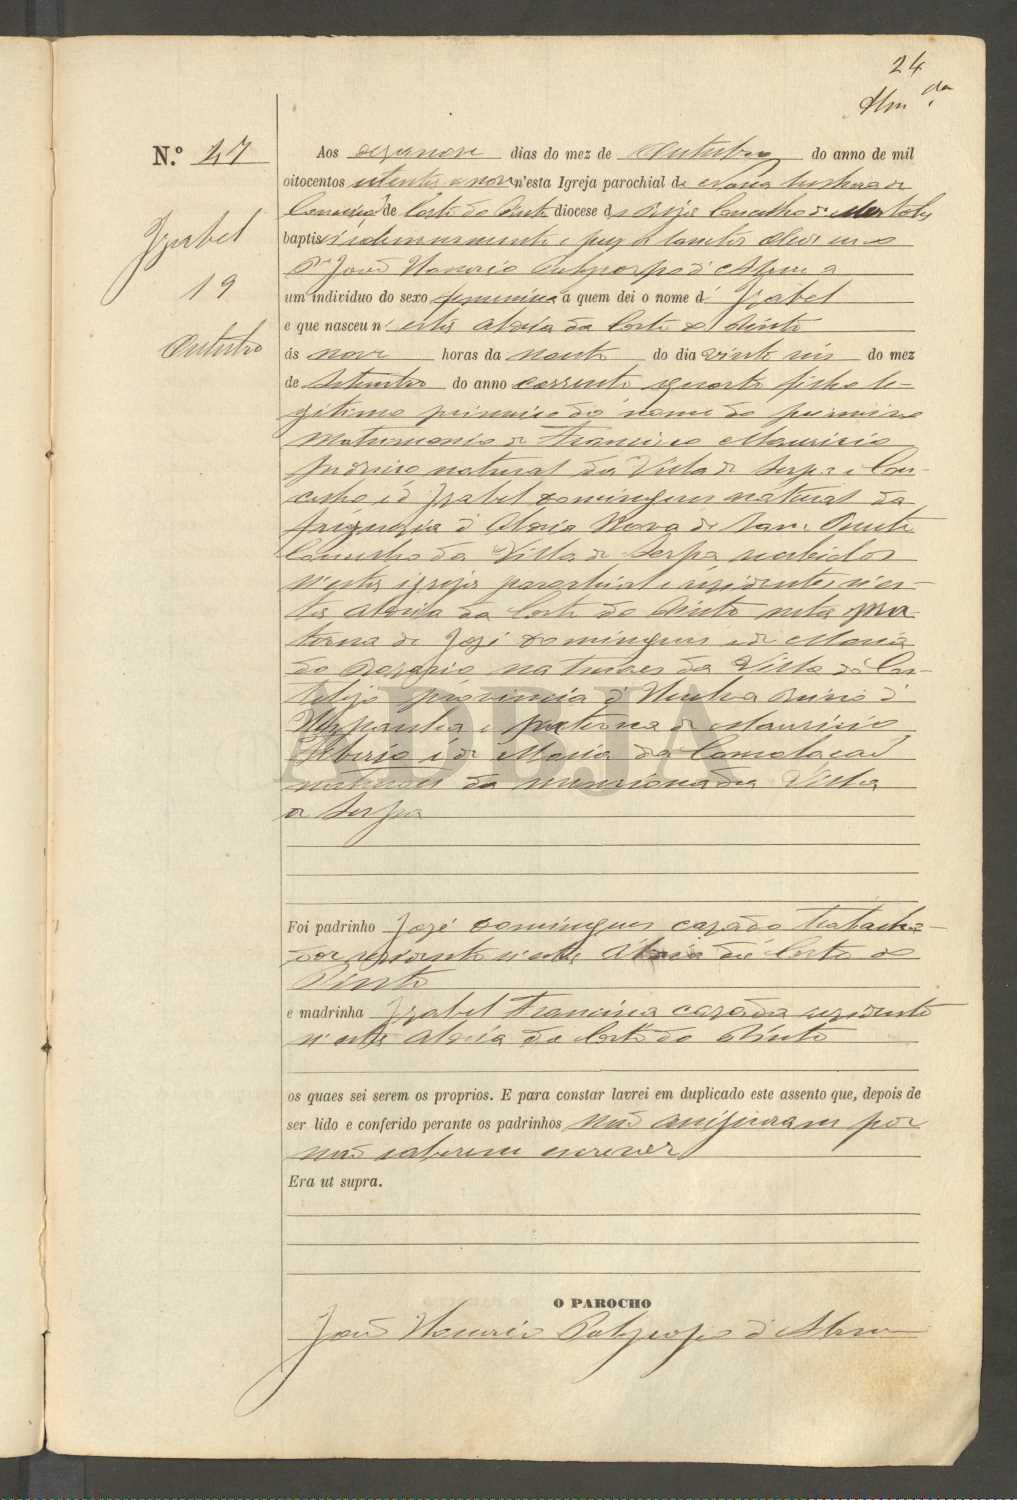 24
Alm.da
N.º 47
Aos dezanove dias do mez de Outubro do anno de mil
oitocentos oitenta e nove n'esta Igreja parochial de Nossa Senhora da
Conceição de Corte do Pinto diocese de Beja Concelho de Mertola
baptisei solemnemente e puz os Santos Oleos eu o
P.e João Honorio d'Abreu a
um individuo do sexo feminino a quem dei o nome d' Izabel
e que nasceu n'esta Aldeia da Corte do Pinto
ás nove horas da noute do dia vinte seis do mez
de Setembro do anno corrente quarto filho le-
gitimo primeiro do nome do primeiro
Matrimonio de Francisco Mauricio
natural da Villa de Serpa e Con-
celho e d' Izabel Domingues natural da
freguezia d' Aldeia Nova de Sam Bento
Concelho da Villa de Serpa recebidos
n'esta igreja parochial e rezidentes n'es-
ta Aldeia da Corte do Pinto neta ma-
terna de Jozé Domingues e de Maria
do Rozario naturaes da Villa do Cas-
tilejo provincia d' Huelva Reino d'
Hespanha e paterna de Mauricio
e de Maria da
naturaes da mencionada Villa
de Serpa
Foi padrinho Jozé Domingues cazado trabalha-
dor rezidente n'esta Aldeia da Corte do
Pinto
e madrinha Izabel Francisca cazada rezidente
n'esta Aldeia da Corte do Pinto
os quaes sei serem os proprios. E para constar lavrei em duplicado este assento que, depois de
ser lido e conferido perante os padrinhos não assignaram por
não saberem escrever
Era ut supra.
O PAROCHO
João Honorio d'Abreu
Izabel
19
Outubro
ADBJA